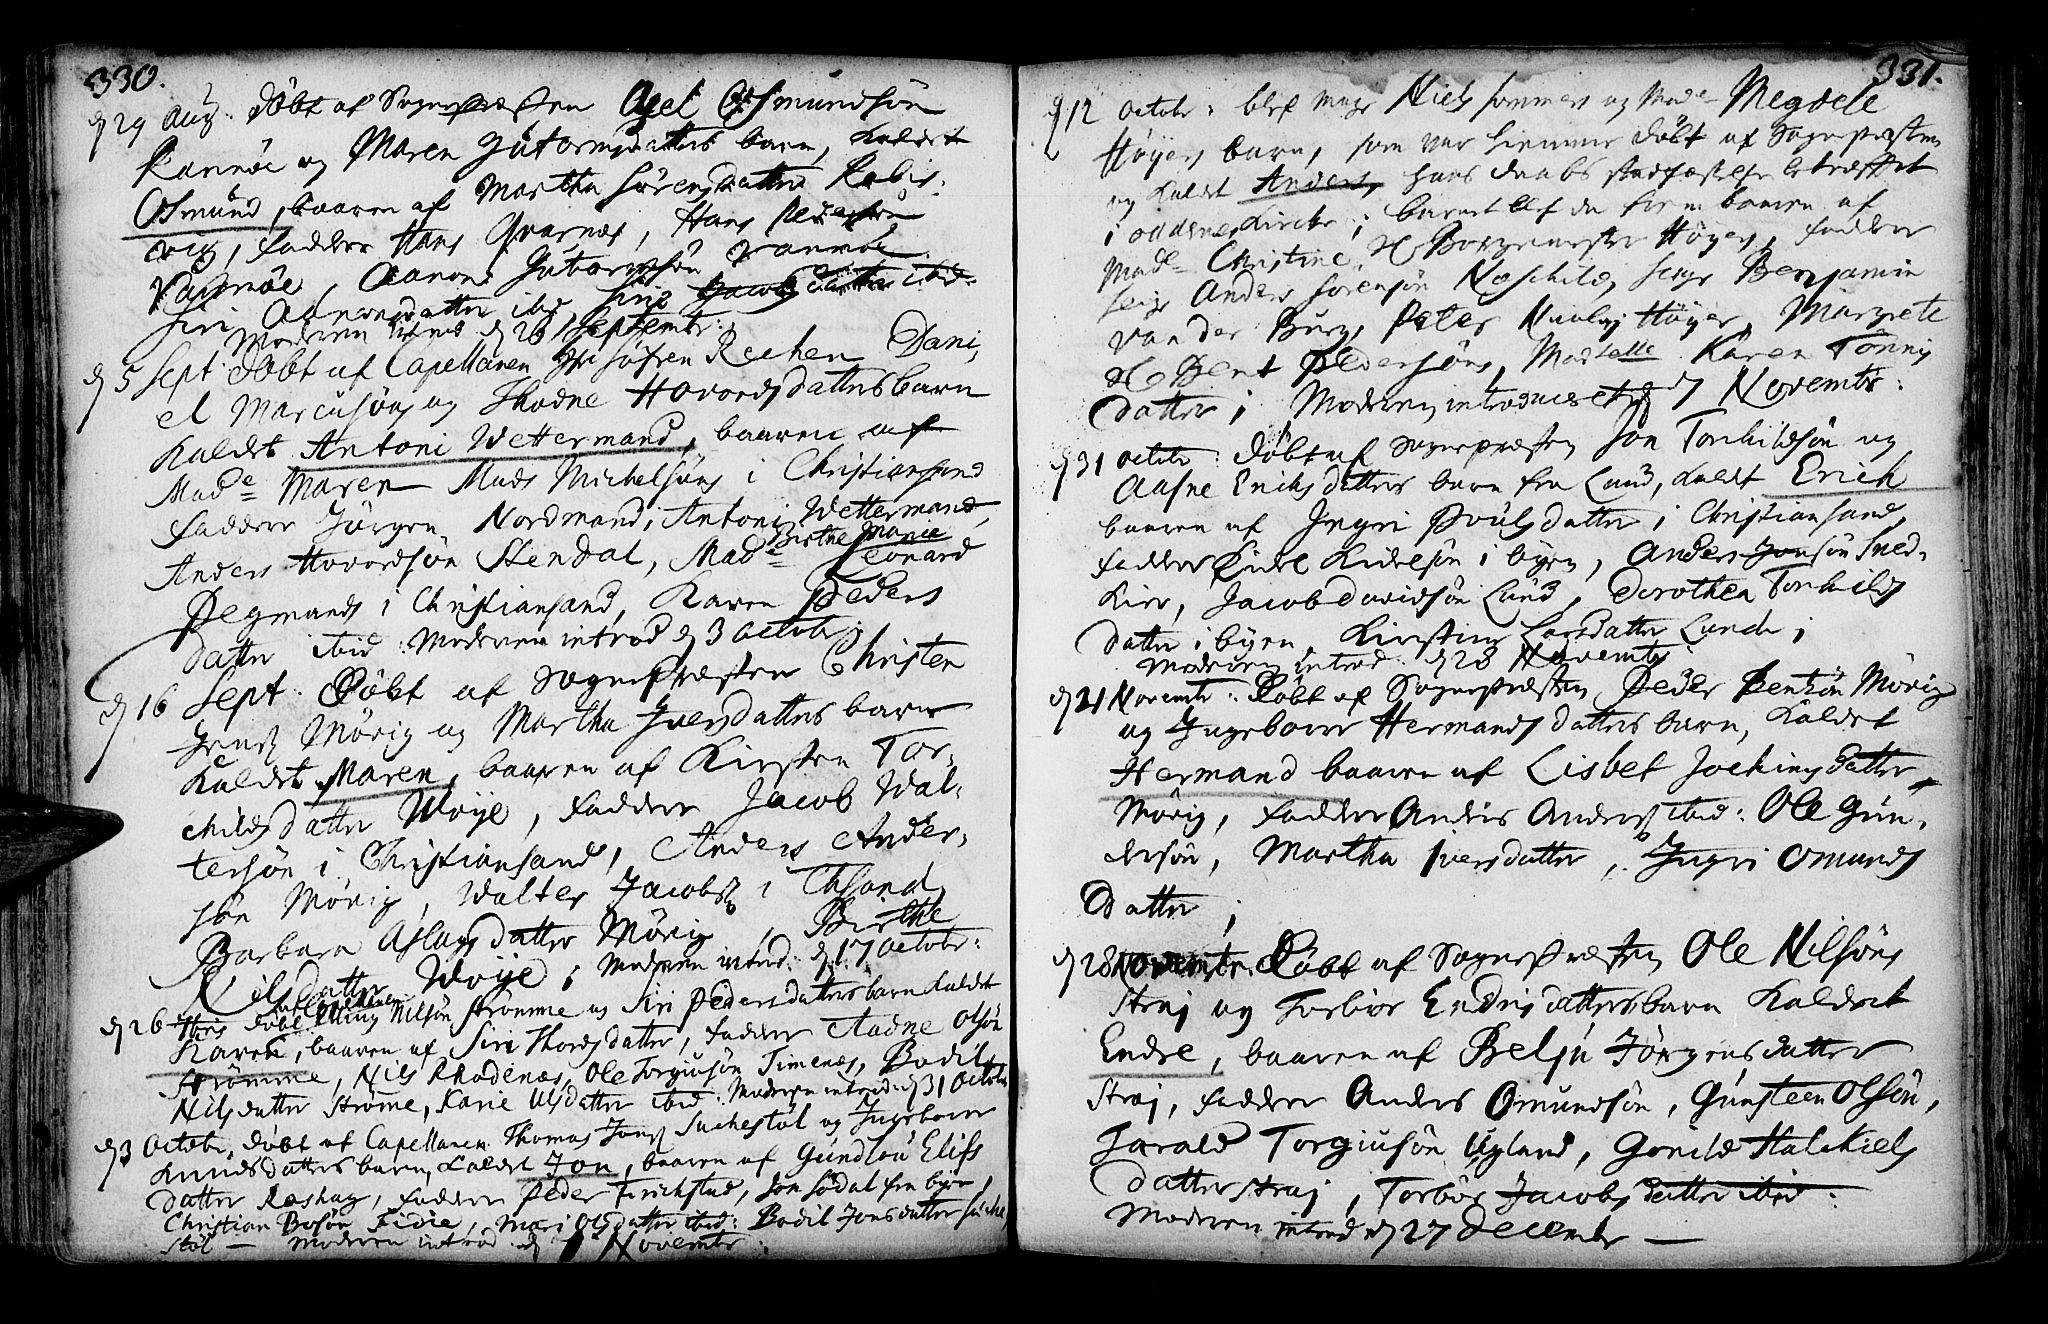 330.
d 29 Aug: døbt af Sognepræsten Axel Osmundsøn
Rannøe og Maren Gutormsdatters barn, kaldet
Osmund, baaren af Martha Sørensdatter Rabis,
vig, faddere Hans Qvarnes, Hans Pedersøn
Rannøe, Aanon Gutormsøn Rannøe
Siri Aanonsdatter ibid, Siri Jacobsdatter ibid.
Moderen introd d 26 Septembr:
d 5 Sept. døbt af Capellanen Hr Søfren Reehen Dani,
el Marcusøns og Thodne Hovordsdatters barn
kaldet Antoni Wettermand, baaren af
Made Maren Mads Michelsøns i Christiansand
faddere Jørgen Nordmand, Antoni Wettermand,
Birthe Marie
Anders Hovordsøn Stendal, Made Leonard
Pegmands i Christiansand, Karen Peders
datter ibid. Moderen introd d 3 octobr;
d 16 Sept. Døbt af Sognepræsten Christen
Jenss Mørig og Martha Iversdatters barn
kaldet Maren, baaren af Kirsten Tor,
childsdatter Woye, faddere Jacob Wal,
tersøn i Christiansand, Anders Ander,
søn Mørig, Walter Jacobss i Chsand,
Barbara Aslagsdatter Mørig, Birthe
Nielsdatter Woye; Moderen introd: d 17 octobr:
af Capellanen
d 26 døbt Elling Nilsøn Strømme og Siri Pedersdatters barn kaldet
Karen, baaren af Siri Thordsdatter, faddere Aadne Olsøn
Strømme, Nils Rhodenæs, Ole Torgiusøn Timenæs, Bodil
Nilsdatter Strøme, Karie Olsdatter ibid: Moderen introd: d 31 octobr
d 3 Octobr, døbt af Capellanen Thomas Jonss Suchestøl og Ingeborre
Knudsdatters barn, kaldet Jon, baaren af Gundlou Elifs
datter Røshag, faddere Peder Firichstad, Jon Sødal fra byen,
Christian Bosøn Eidie, Mari Olsdatter ibid: Bodil Jonsdatter Suche
støl — Moderen introd d 7 Novembr:
331.
d 12 octobr: blef Monsr Niels Sommers og Made Megdele
Høyers barn, som var hiemme døbt af Sognepræsten
og kaldet Anders, hans daabs stadfæstelse betræffet
i oddernes Kircke; barnet blef da frem baaren af
Made Christine Hr Borgemester Høyers, faddere
Seigr Anders Sørensøn Neschilds, Seigr Benjamin
van der Burg, Peter Nicolaj Høyer, Margrete
Hr Bent Pedersøns, Madselle Karen Tønnis
datter; Moderen introduceret d 7 Novembr:
d 31 octobr: døbt af Sognepræsten Jon Torkildsøn og
Aasne Erichsdatters barn fra Lund, kaldet Erich
baaren af Ingri Povlsdatter i Christiansand,
faddere Eidel Kidelsøn i byen, Anders Jonsøn Sned,
kier, Jacob Davidsøn Lund, Dorothea Torkilds
datter i byen, Kirstine Larsdatter Lunde;
Moderen introd: d 28 Novembr
d 21 Novembr: Døbt af Sognepræsten Peder Bentsøn Mørig
og Ingeborre Hermandsdatters barn, kaldet
Hermand baaren af Lisbet Jochimsdatter
Mørig, faddere Anders Anderss ibid: Ole Gun,
dersøn, Martha Iversdatter, Ingri Omunds
datter;
d 28 Novembr. Døbt af Sognepræsten Ole Nilsøns
Straj og Torbior Endrisdatters barn kaldet
Endre, baaren af Beljú Jørgensdatter
Straj, faddere Anders Omundsøn, Gunsteen Olsøn,
Harald Torgiusøn Ugland, Gonild Halckiels
datter Straj, Torbør Jacobsdatter ibid:
Moderen introd d 27 Decembr —